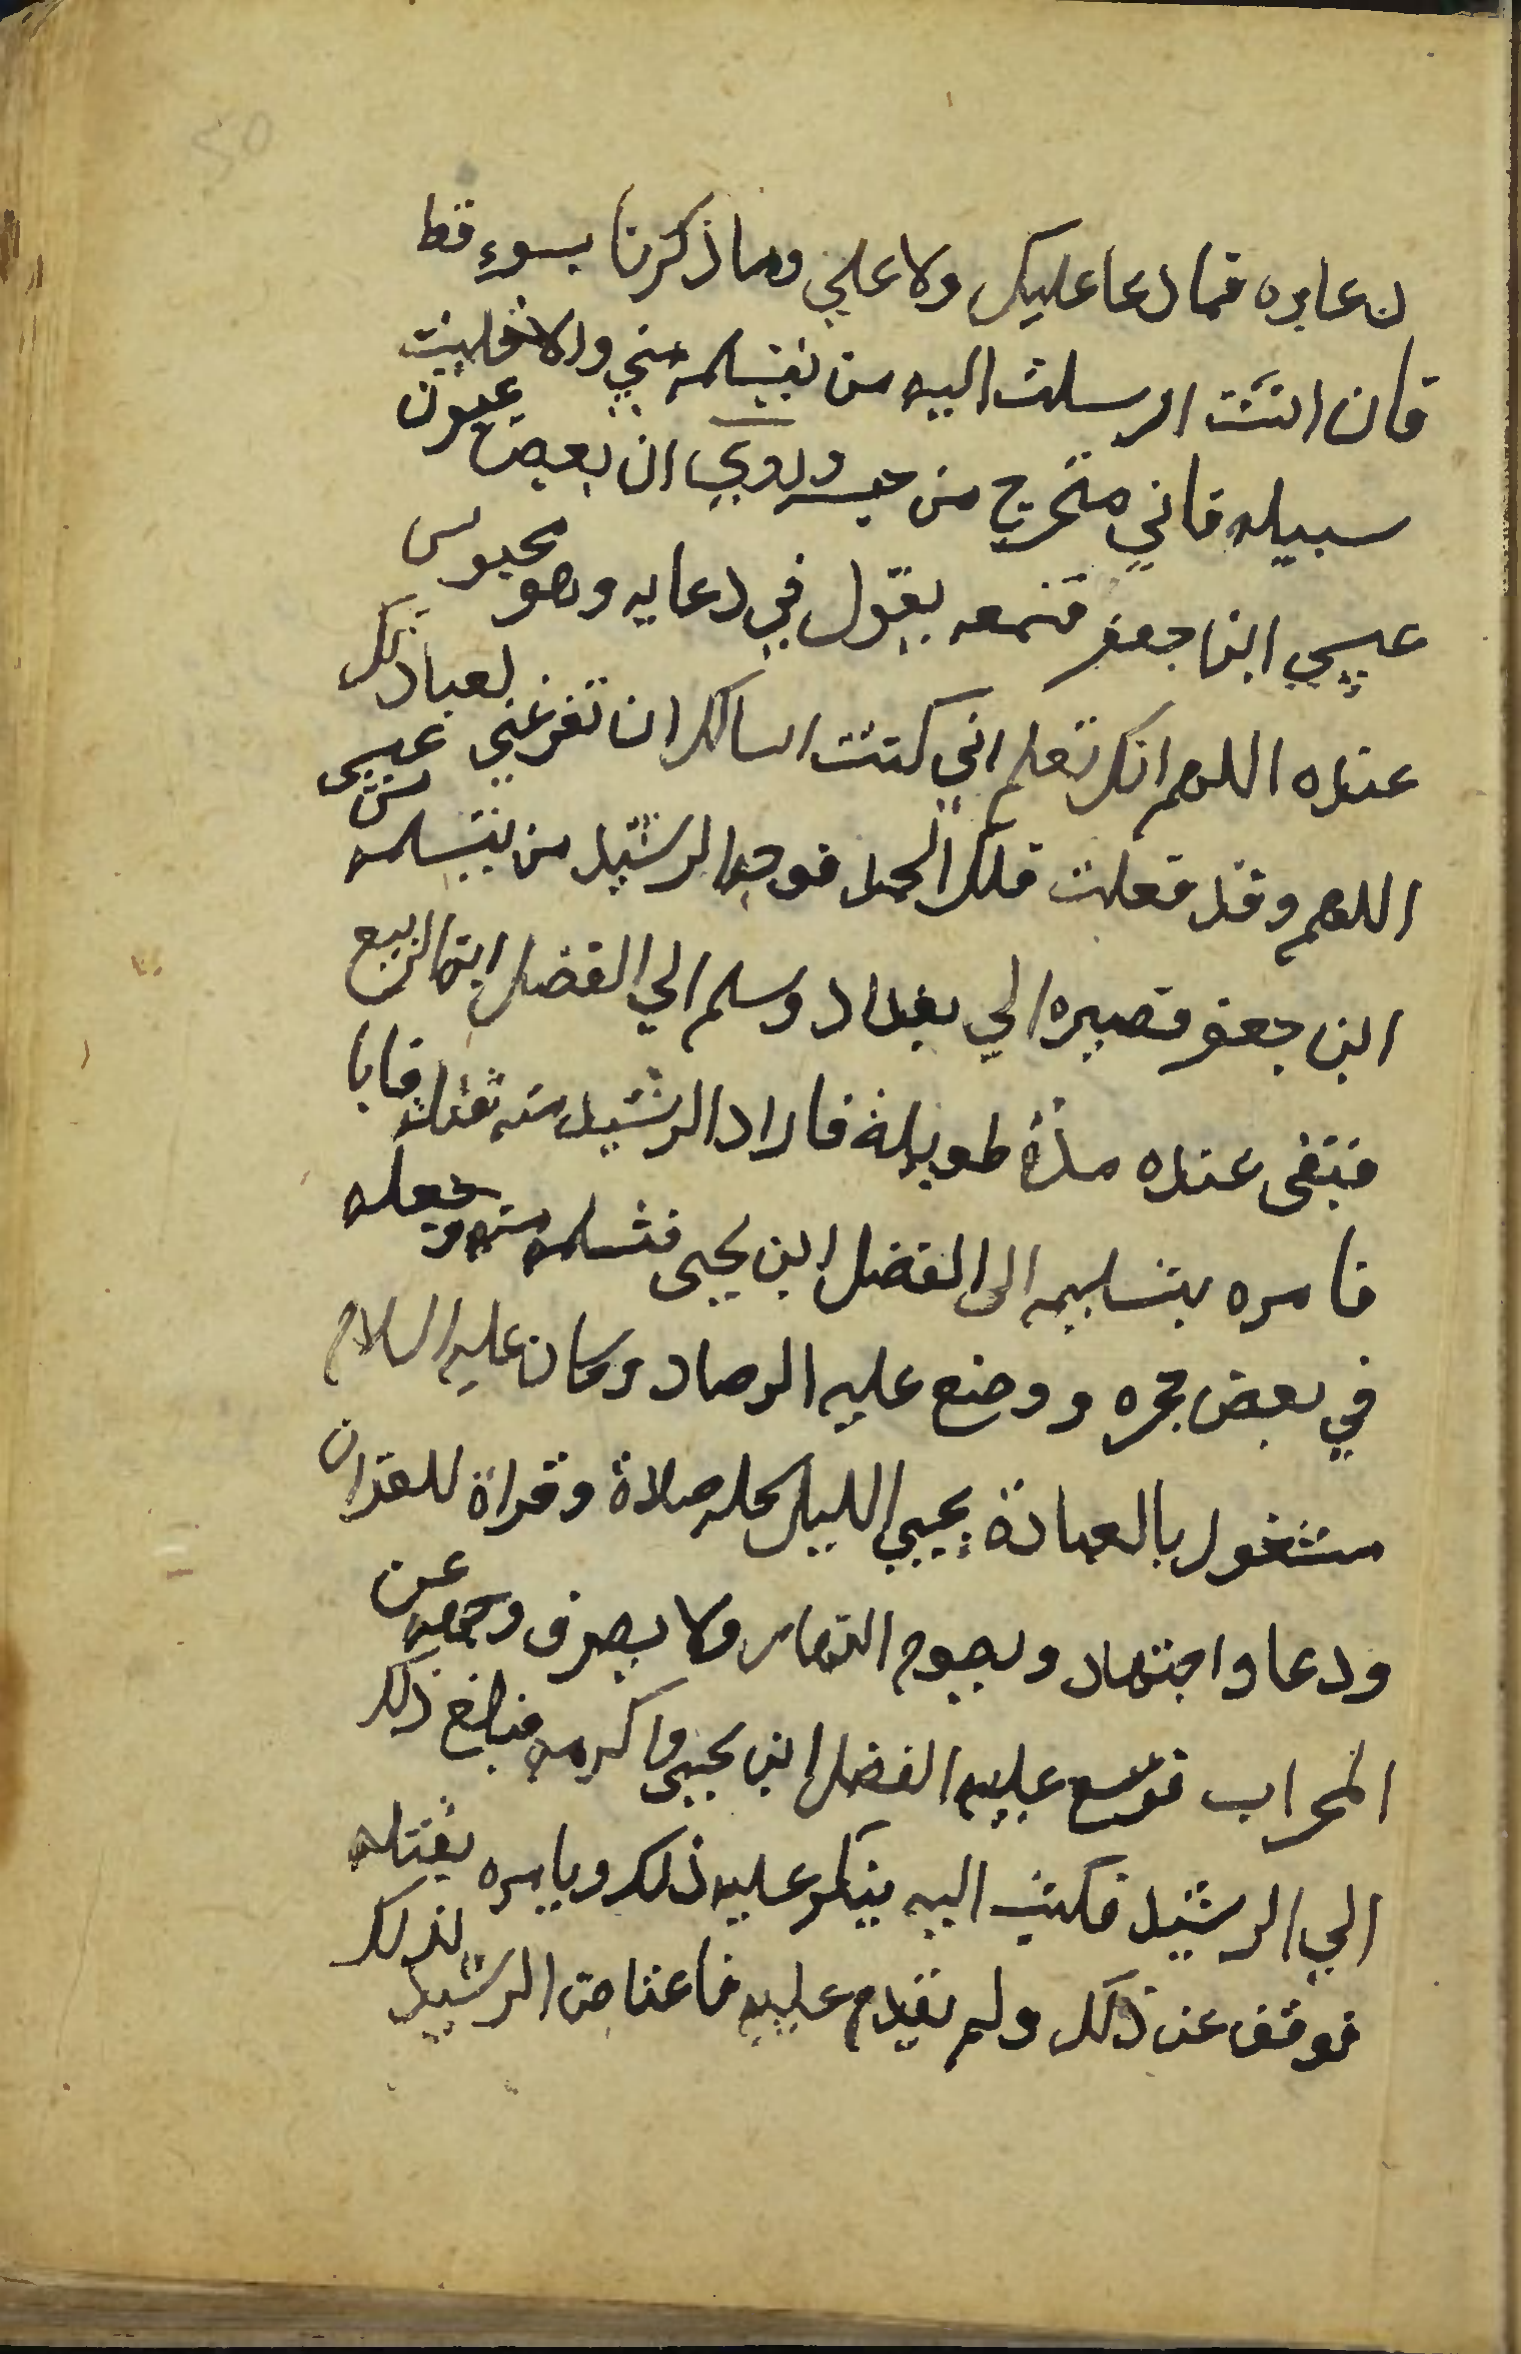 50
ن عايره فما دعا عليك ولا علي وما ذكرنا بسوء قط
فان انت ارسلت اليه من يتسلمه مني والا خليت
سبيله فاني متحرج من حبسه وروي ان بعض عيون
عيسي ابن جعفر فسمعه يقول في دعايه وهو محبوس
عنده اللهم انك تعلم اني كنت اسالك ان تفرغني لعبادتك
اللهم وقد فعلت فلك الحمد فوجه الرشيد من يتسلمه من عيسى
ابن جعفر فصيره الي بغداد وسلم الي الفضل ابن الربيع
فبقى عنده مدة طويلة فاراد الرشيد منه قتله فابا
فامره بتسليمه الى الفضل ابن يحيى فتسلمه منه وجعله
في بعض حجره ووضع عليه الرصاد وكان عليه السلام
مشغول بالعبادة يحيي الليل كله صلاة وقراة للقران
ودعا واجتهاد ويصوم النهار ولا يصرف وجهه عن
المحراب فوسع عليه الفضل ابن يحيى واكرمه فبلغ ذلك
الي الرشيد فكتب اليه ينكر عليه ذلك ويامره بقتله
فوقف عن ذلك ولم يقدم عليه فاغتاض الرشيد لذلك